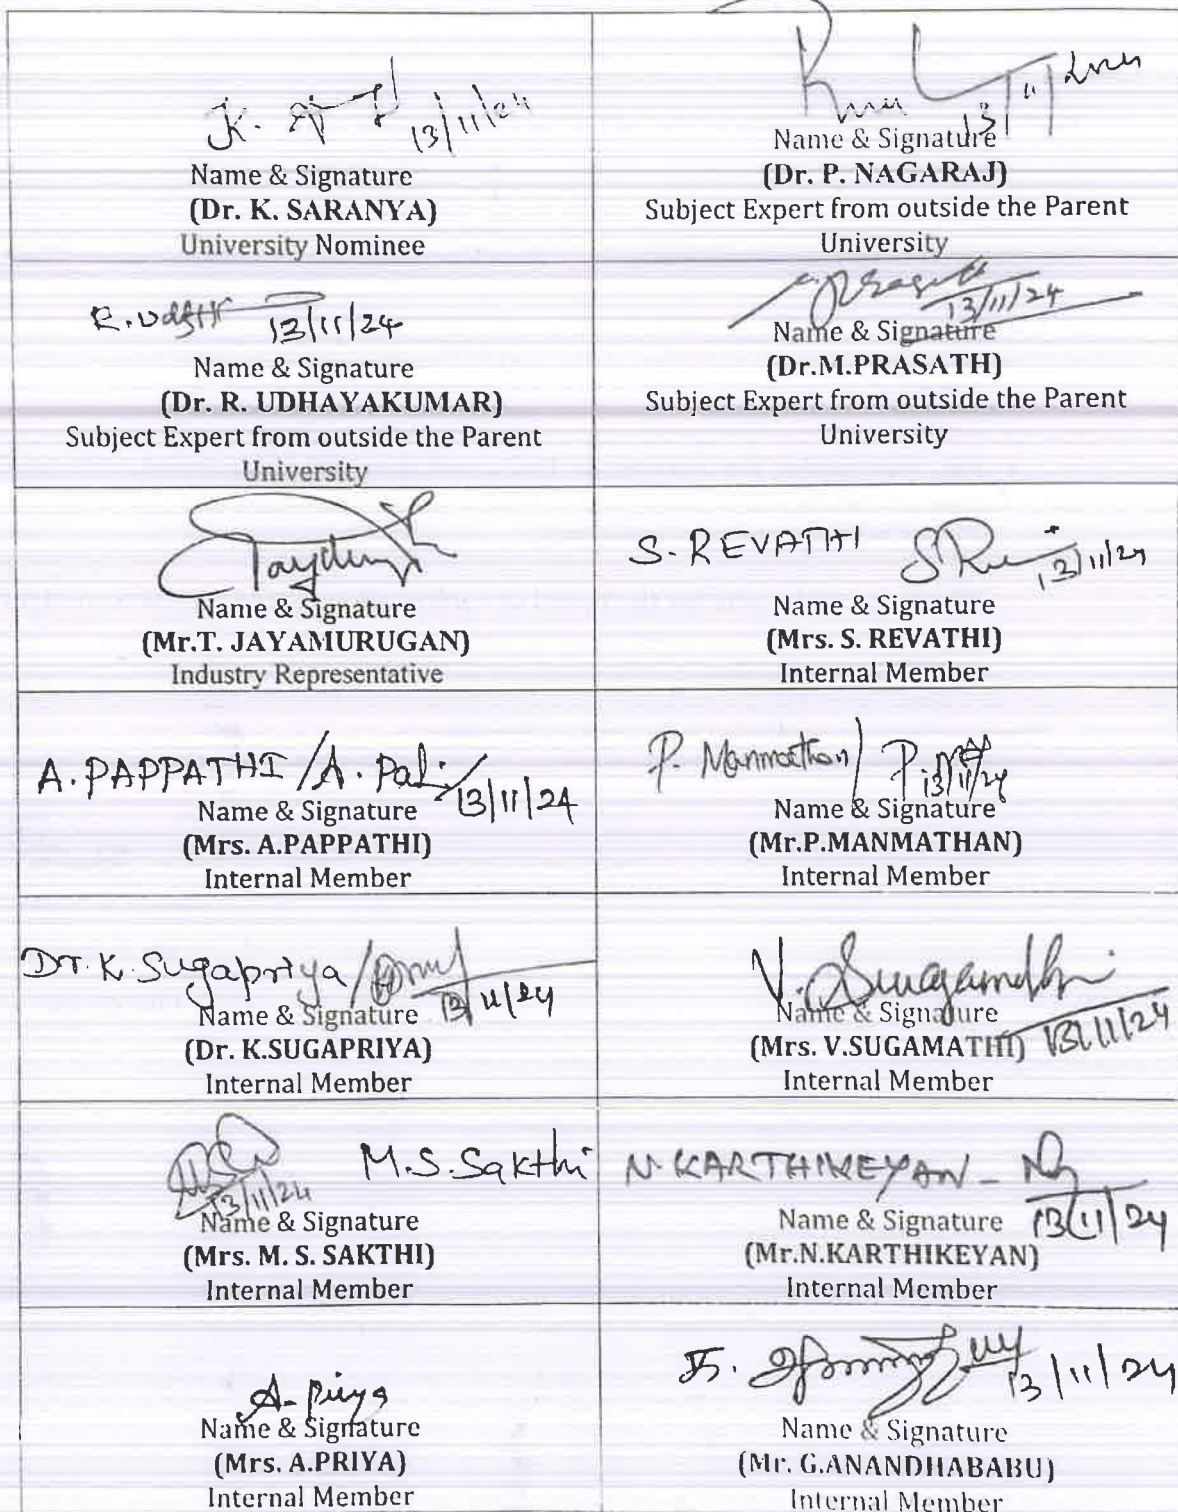 K.
13/11/24
Name & Signature
(Dr. K. SARANYA)
University Nominee
13/11/2024
Name & Signature
(Dr. P. NAGARAJ)
Subject Expert from outside the Parent
University
13/11/24
Name & Signature
(Dr. R. UDHAYAKUMAR)
Subject Expert from outside the Parent
University
13/11/24
Name & Signature
(Dr.M.PRASATH)
Subject Expert from outside the Parent
University
Name & Signature
(Mr.T. JAYAMURUGAN)
Industry Representative
S. REVATHI
13/11/24
Name & Signature
(Mrs. S. REVATHI)
Internal Member
A. PAPPATHI /
13/11/24
Name & Signature
(Mrs. A.PAPPATHI)
Internal Member
P. Manmathan /
13/11/24
Name & Signature
(Mr.P.MANMATHAN)
Internal Member
Dr. K. Sugapriya /
13/11/24
Name & Signature
(Dr. K.SUGAPRIYA)
Internal Member
13/11/24
Name & Signature
(Mrs. V.SUGAMATHI)
Internal Member
M.S.Sakthi
13/11/24
Name & Signature
(Mrs. M. S. SAKTHI)
Internal Member
N. KARTHIKEYAN -
13/11/24
Name & Signature
(Mr.N.KARTHIKEYAN)
Internal Member
A. Priya
Name & Signature
(Mrs. A.PRIYA)
Internal Member
13/11/24
Name & Signature
(Mr. G.ANANDHABABU)
Internal Member